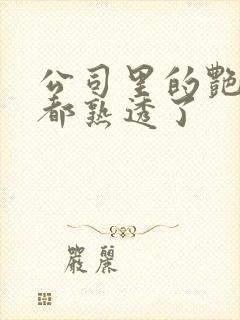 公司里的艷
都熟透了
嚴麗